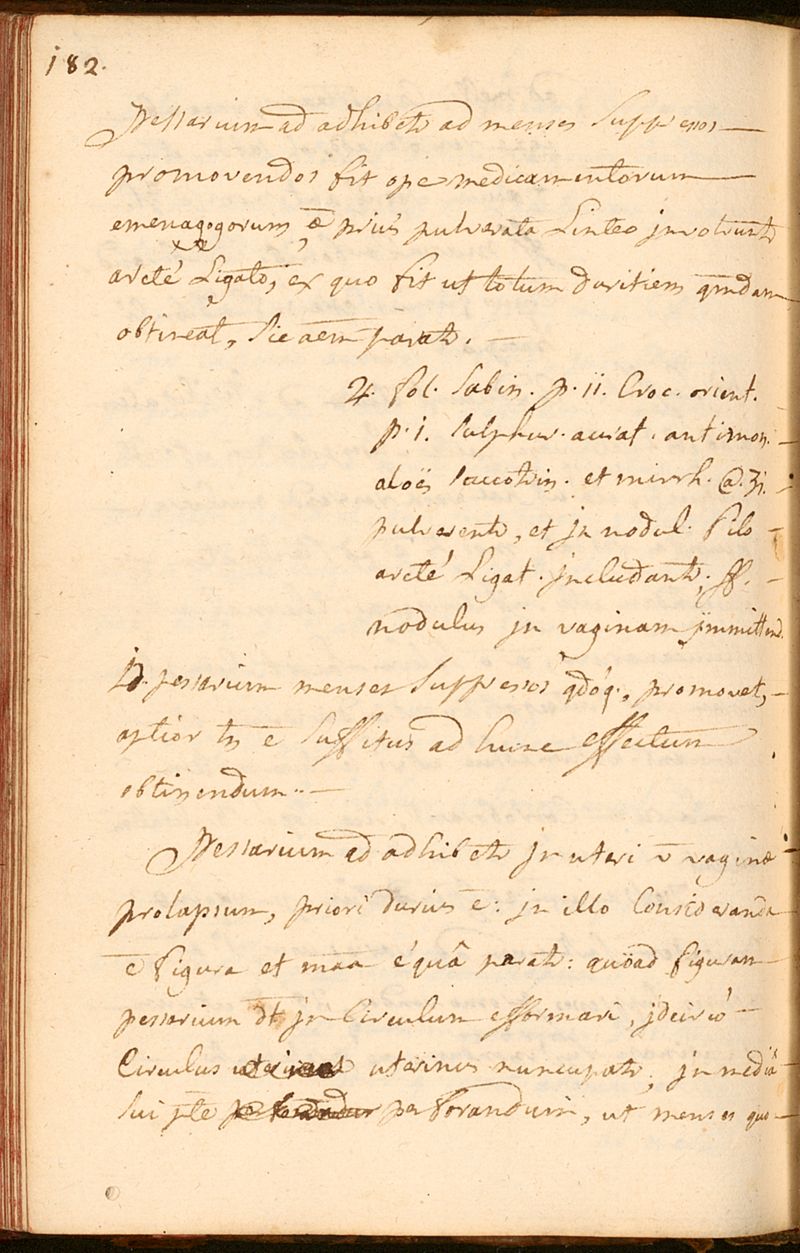 182.
Pessarium qd adhibetr ad menses suppressos
promovendos fit ope medicamentorum
emenagogorum, quæ prius pulverata Linteo involvuntr
arcté Ligato, ex quo fit ut totum duritiem qmdam
obtineat, sic aem paratr.
♃. fol. sabin. p. ii. Croc. orient.
p. i. sulphur. aurat. antimon.
aloës succotrin. et mirrh. @. ʒi.
pulverentr, et jn nodul. filo
arcté Ligat. jncludantr, ff.
nodulus jn vaginam jmmittend.
Id. pessarium menses suppressos qdóq., promovet,
aptior tn ē suffitus ad hunc effectum
obtinendum.
Pessarium qd adhibetr jn uteri v vaginæ
prolapsum, priori durius ē: jn illo Consideranda
ē figura et maa é quâ paratr: quöad figuram
pessarium dt jn Circulum efformari, jdcircó
Circulus uterinus nuncupatr, jn mediâ
sui pte perforandum, ut menses quo-